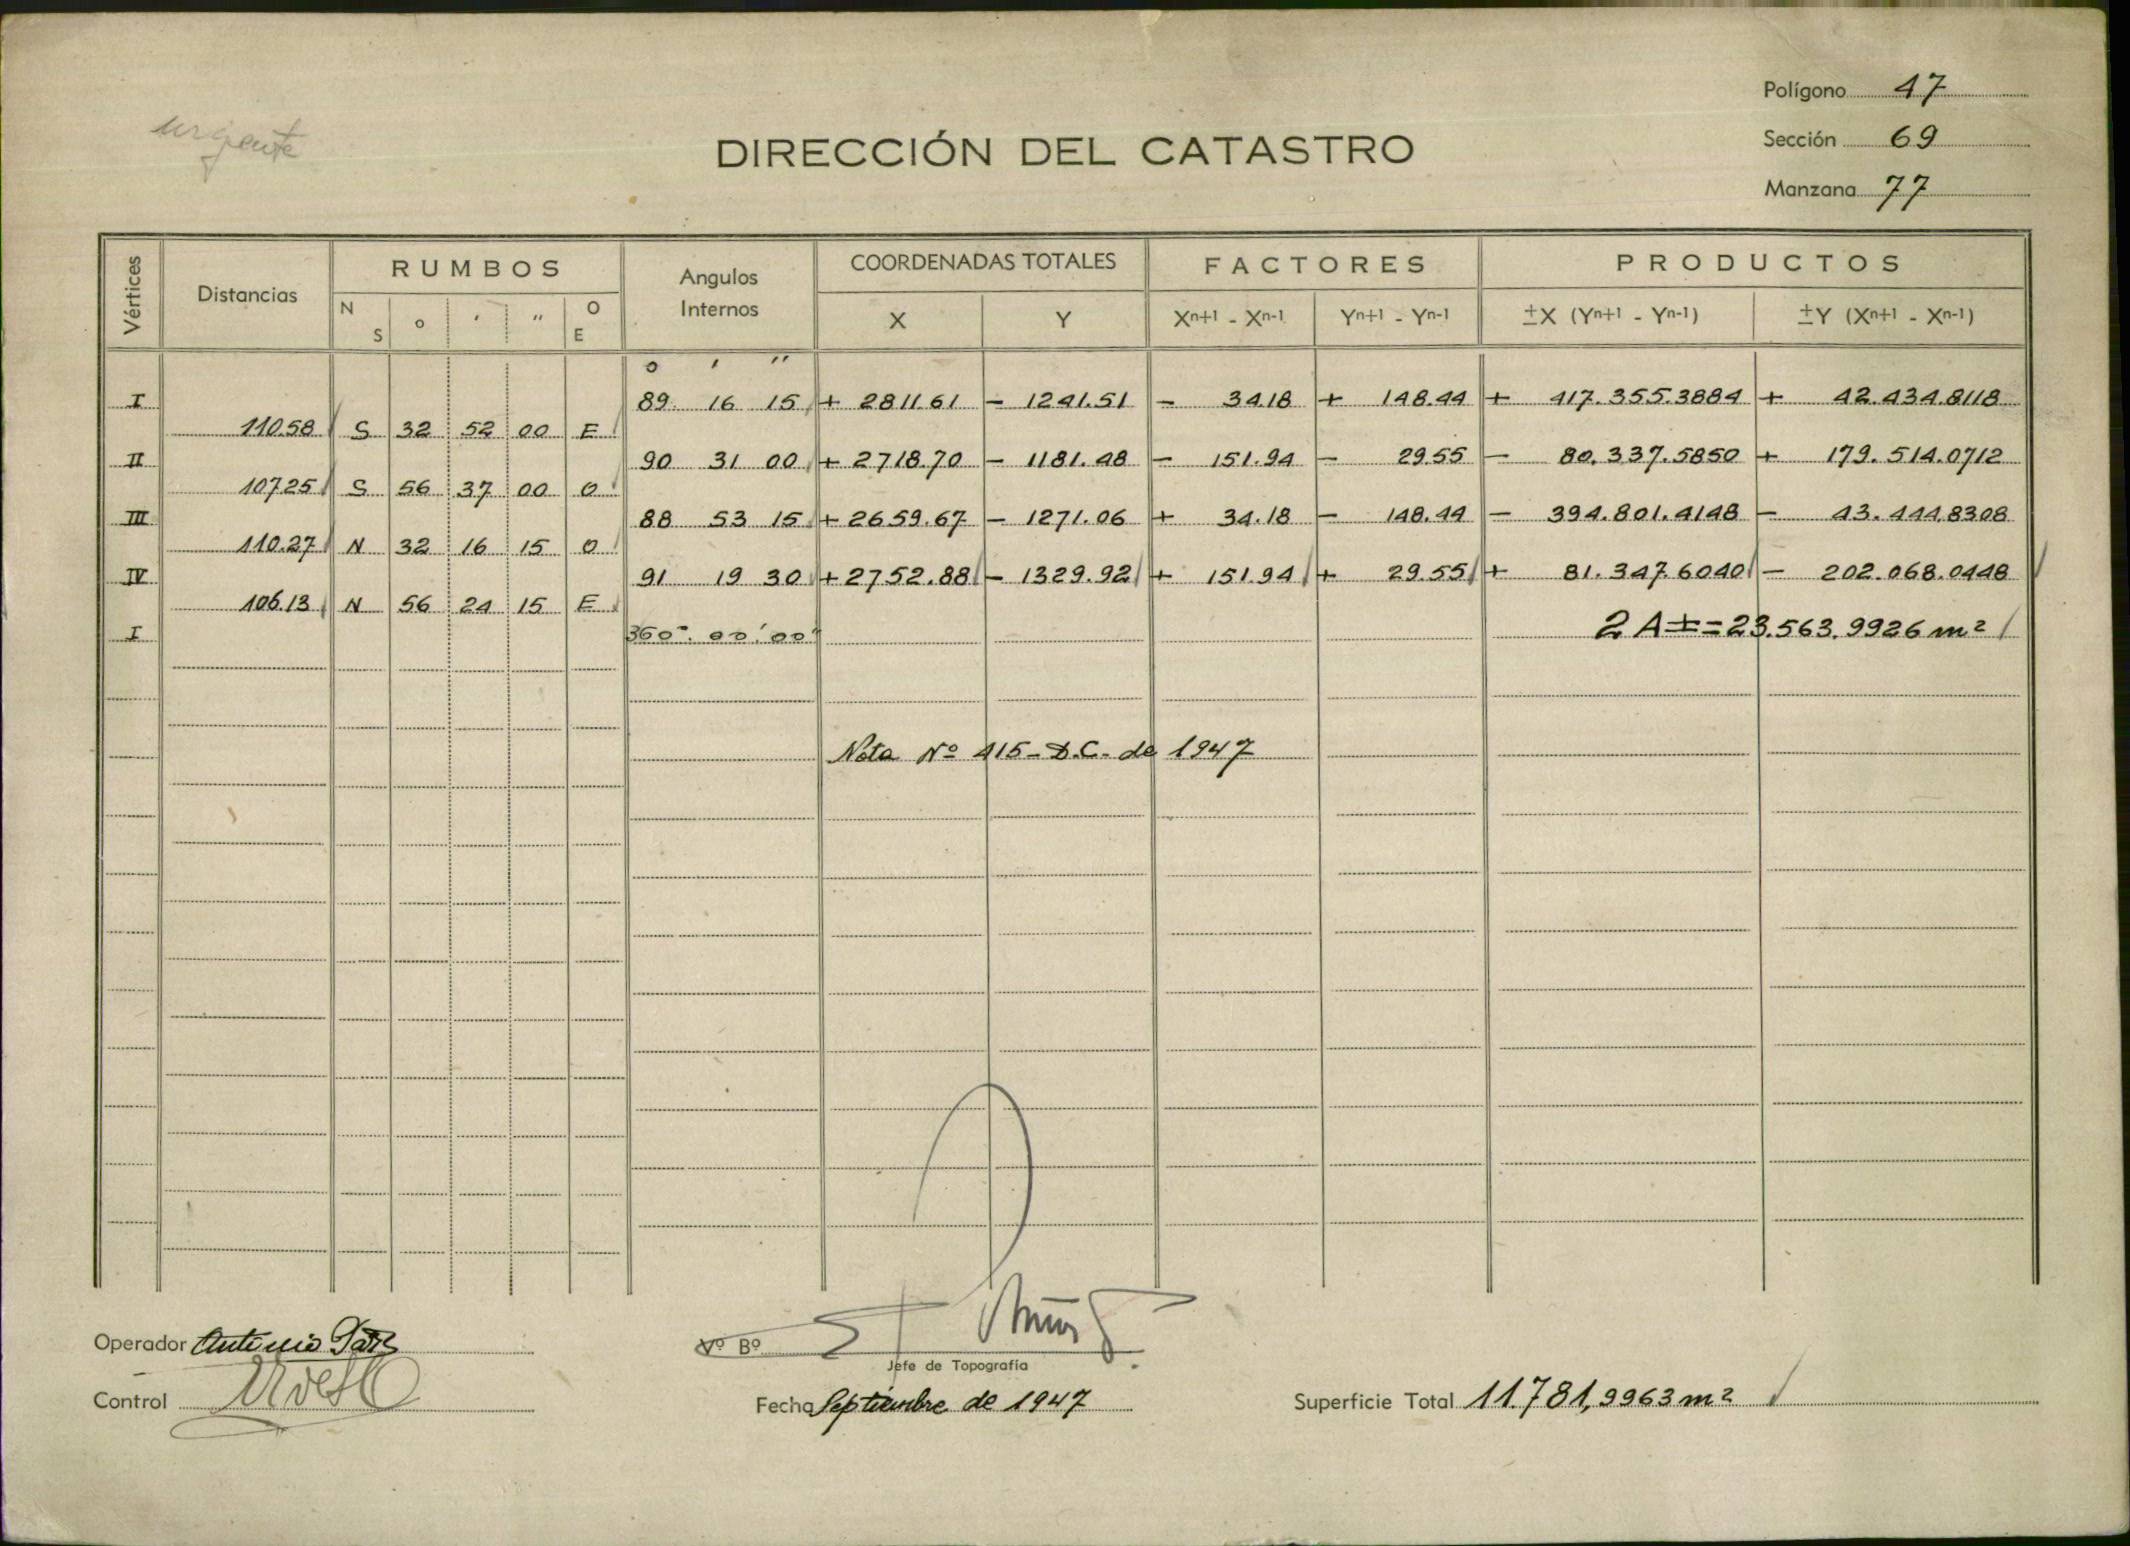 Polígono 47
urgente
DIRECCIÓN DEL CATASTRO
Sección 69
Manzana 77
Vértices Distancias RUMBOS Angulos Internos COORDENADAS TOTALES FACTORES PRODUCTOS
N S o ' " O E X Y Xn+1 - Xn-1 Yn+1 - Yn-1 ±X (Yn+1 - Yn-1) ±Y (Xn+1 - Xn-1)
o ' "
I 89 16 15 + 2811.61 - 1241.51 - 34.18 + 148.44 + 417.355.3884 + 42.434.8118
110.58 S 32 52 00 E
II 90 31 00 + 2718.70 - 1181.48 - 151.94 - 29.55 - 80.337.5850 + 179.514.0712
107.25 S 56 37 00 O
III 88 53 15 + 2659.67 - 1271.06 + 34.18 - 148.44 - 394.801.4148 - 43.444.8308
110.27 N 32 16 15 O
IV 91 19 30 + 2752.88 - 1329.92 + 151.94 + 29.55 + 81.347.6040 - 202.068.0448
106.13 N 56 24 15 E
I 360°.00'.00" 2 A ± = 23.563.9926 m²
Nota Nº 415 - D.C. - de 1947
Operador Antonio
Vº Bº
Jefe de Topografía
Control
Fecha Septiembre de 1947
Superficie Total 11.781,9963 m²